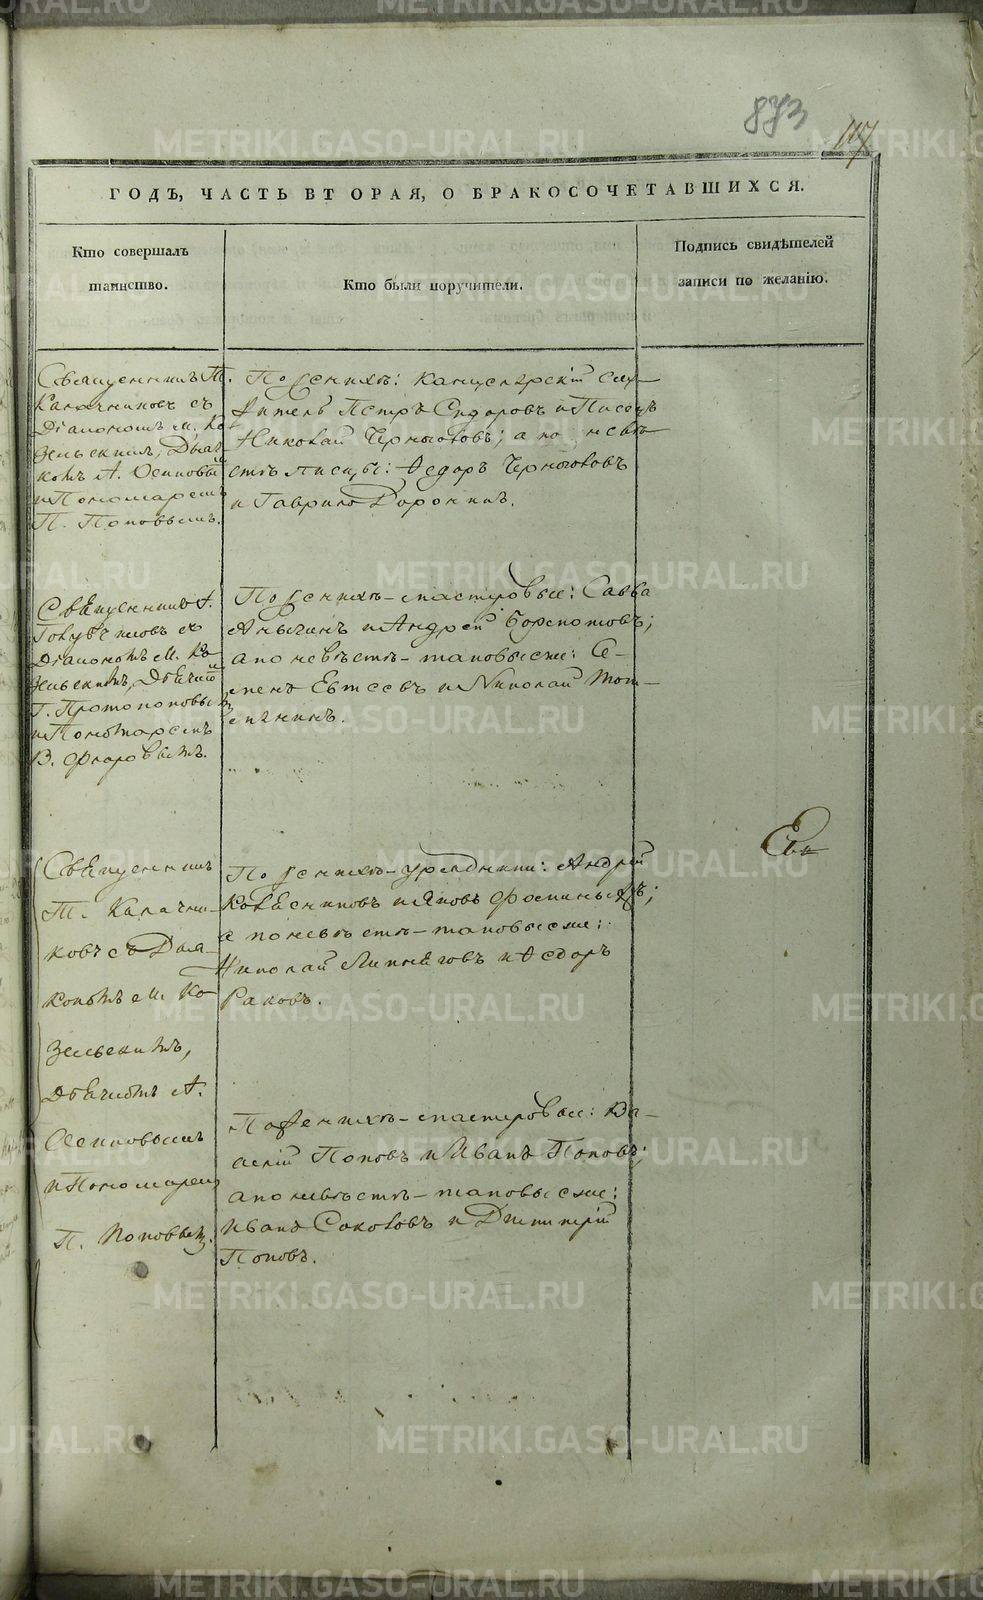 873
117
ГОДЪ, ЧАСТЬ ВТОРАЯ, О БРАКОСОЧЕТАВШИХСЯ.
Кто совершалъ
таинство.
Кто были поручители.
Подпись свидѣтелей
записи по желанію.
Священникъ Т.
Калачниковъ съ
Діакономъ М. Ко
зельскимъ, Дьяч
комъ А. Осиповы
и Пономаремъ
П. Поповымъ.
По женихѣ: Канцелярскій слу
житель Петръ Сидоровъ и Писецъ
Николай Черноголовъ; а по невѣ
стѣ писцы: Ѳедоръ Черноголовъ
и Гаврило Доронинъ.
Священникъ А.
съ
Діакономъ М. Ко
зельскимъ, Дьячко
Г. Протопоповы
и Пономаремъ
В. Флоровымъ.
По женихѣ - мастеровые: Савва
и Андрей
а по невѣстѣ - таковые же: Се-
менъ Евтеевъ и Николай
Священникъ
Т. Калачни-
ковъ съ Діа-
кономъ М. Ко
зельскимъ,
Дьячкомъ А.
Осиповымъ
и Пономаремъ
П. Поповымъ.
По женихѣ - урядники: Андрей
Колесниковъ и Яковъ Фоминыхъ;
а по невѣстѣ - таковые же:
Николай и Ѳедоръ
Раковъ.
По женихѣ - мастеровые: Ва-
силій Поповъ и Иванъ Поповъ;
а по невѣстѣ - таковые же:
Иванъ Соколовъ и Димитрій
Поповъ.
METRIKI.GASO-URAL.RU